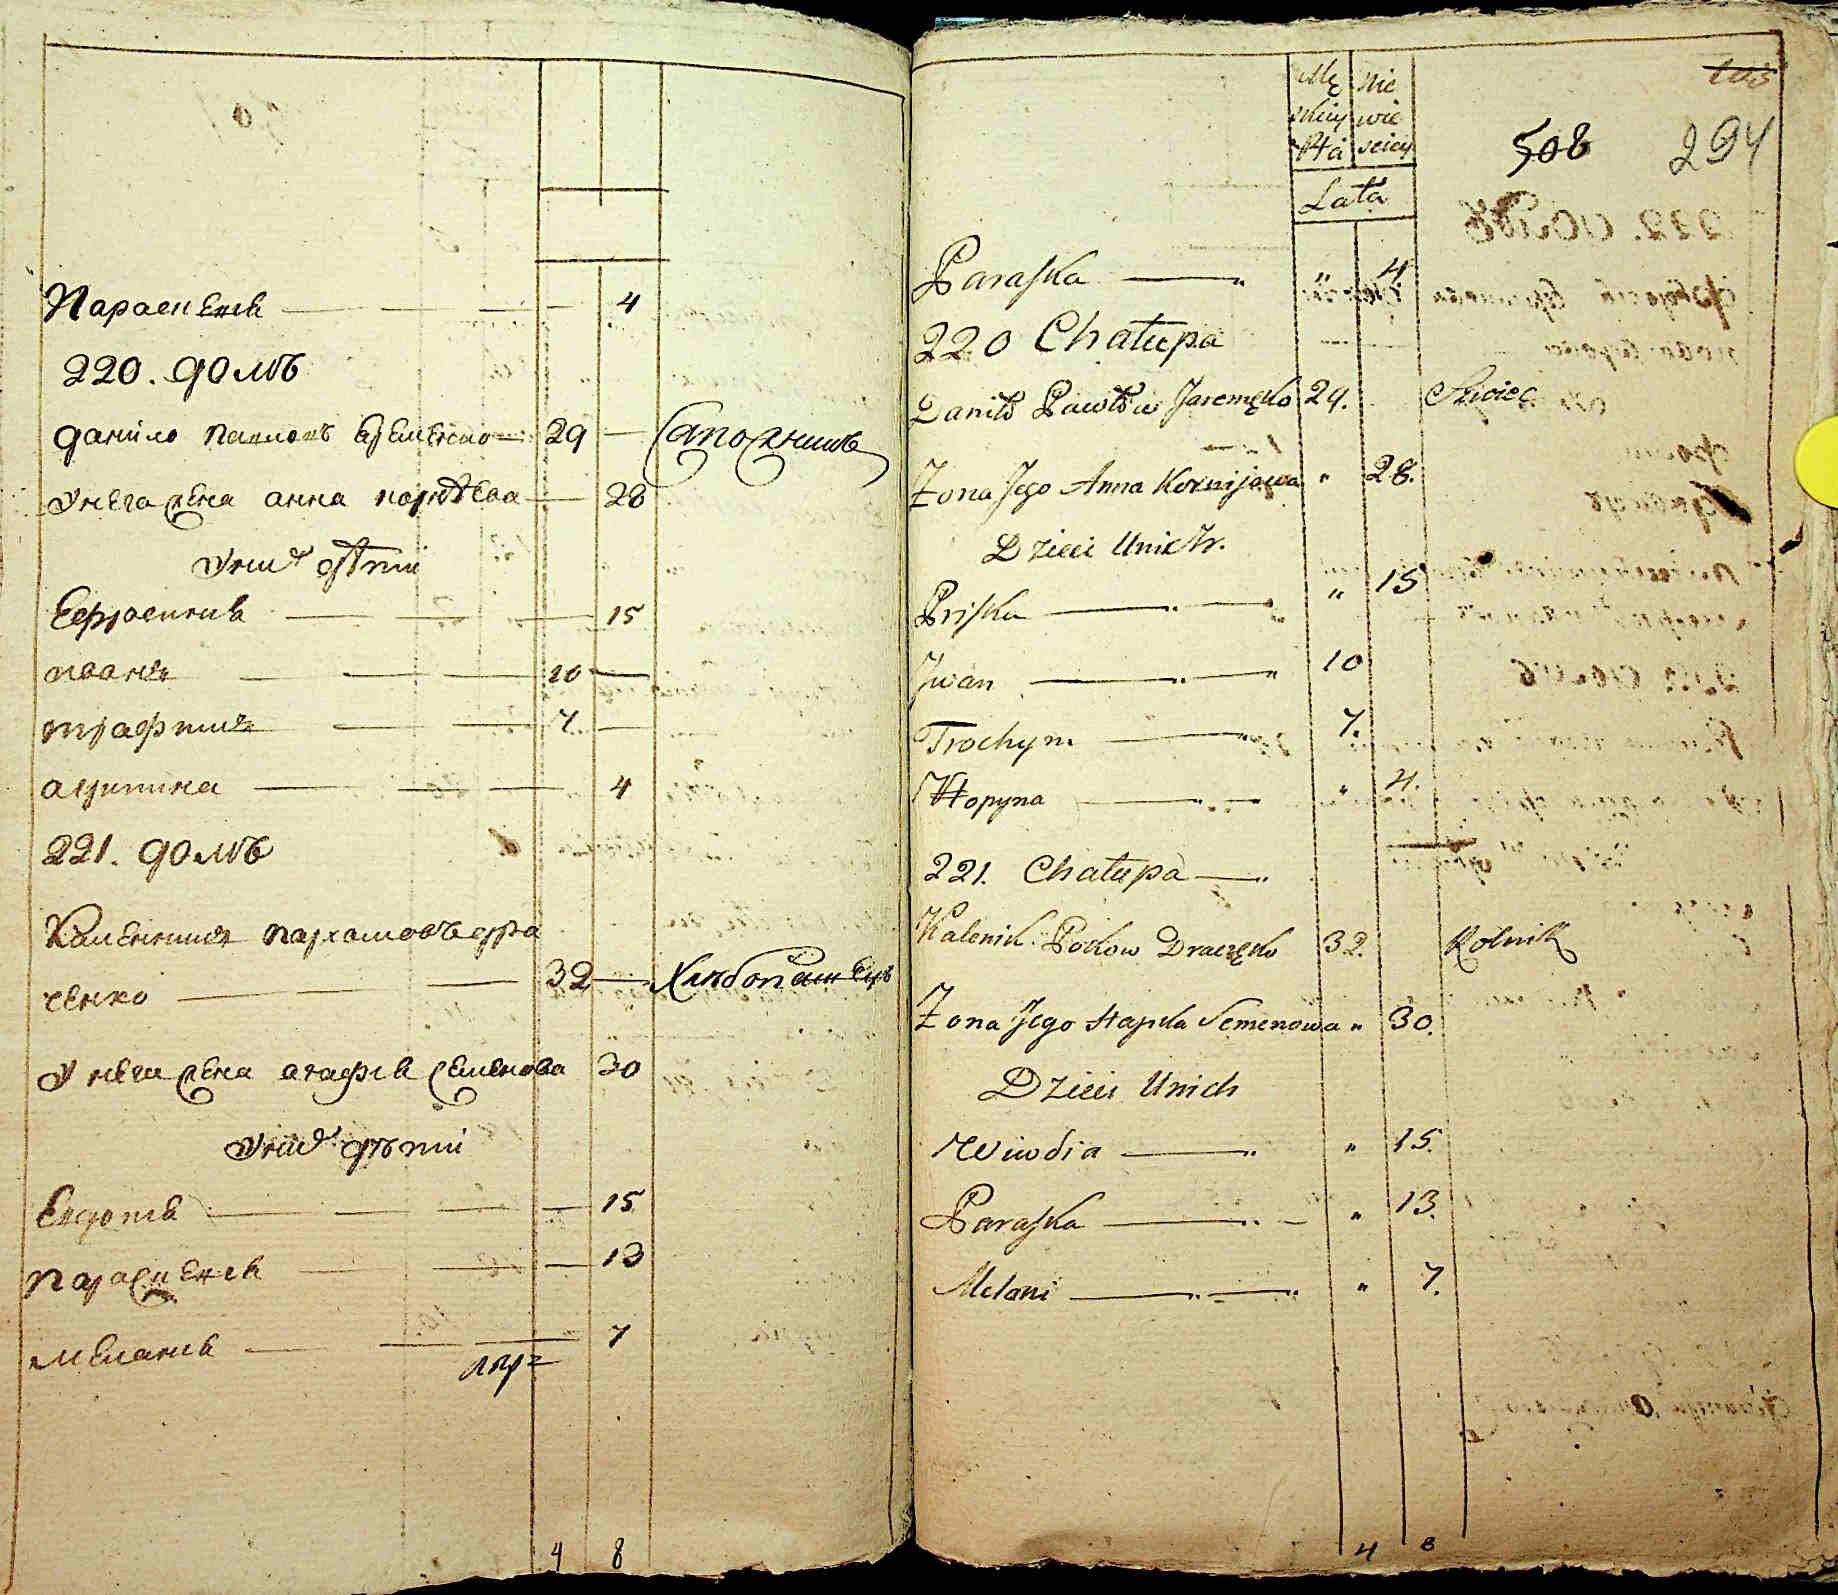 Параскевіа 4
220. домъ
данило павловъ Яременко 29 Сапожникъ
у него жена анна корнѣева 28
у нихъ дѣти
Ефросиніа 15
иванъ 10
трофимъ 7
агрипина 4
221. домъ
Каленникъ пархомовъ дра
ченко 32 Хлѣбопашецъ
у него жена агафіа семенова 30
у нихъ дѣти
Евдокіа 15
параскевіа 13
меланіа 7
4 8
Mę Nie
skiey wie
Płci sciey
Lata
508 294
Paraska " 4
220 Chałupa
Daniło Pawłow Jaremęko 29. Szwiec
Zona Jego Anna Kornijowa " 28.
Dzieci Unich.
Priska " 15
Jwan 10
Trochym 7.
Horpyna " 4.
221. Chałupa
Kalenik Potkow Draczęko 32. Rolnik
Zona Jego Hapka Semenowa " 30.
Dzieci Unich
Wiwdia " 15.
Paraska " 13.
Melani " 7.
4 8